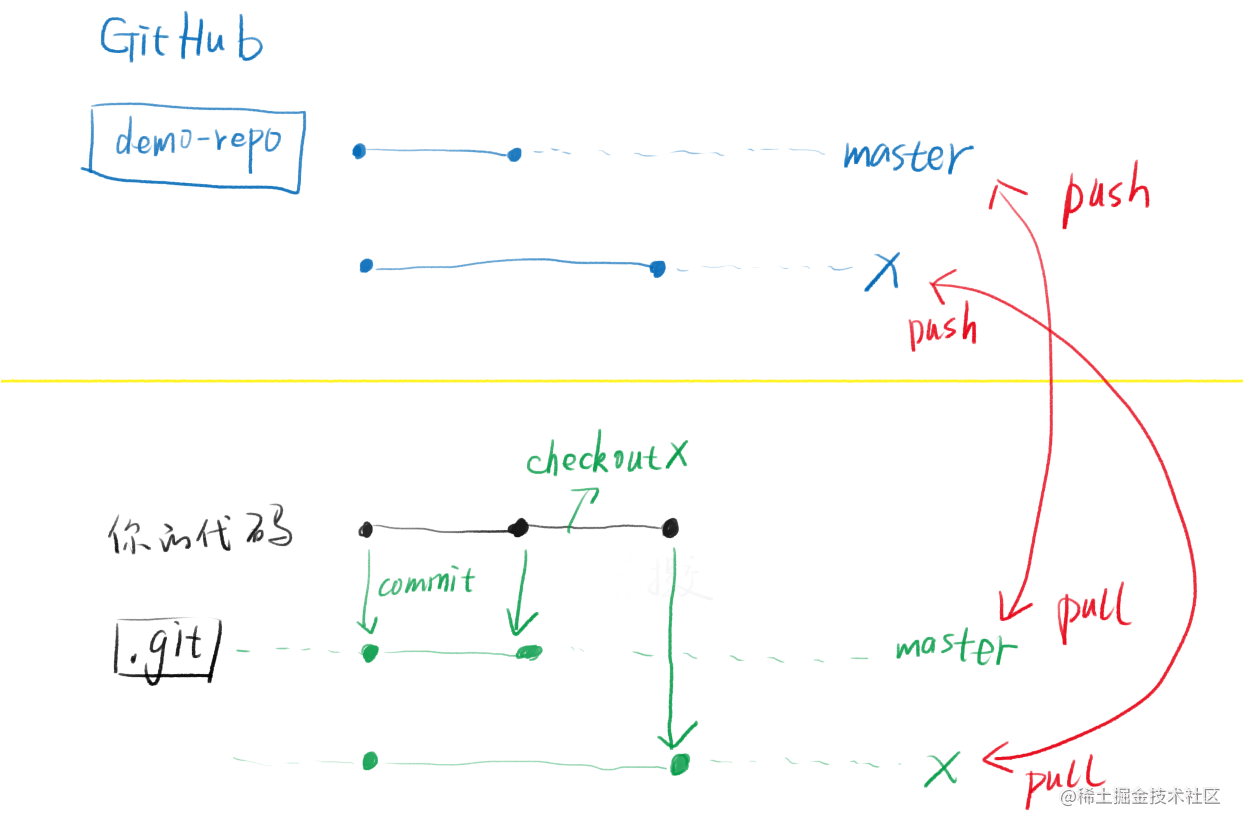 GitHub
demo-repo
master
push
X
push
checkout X
你的代码
commit
.git
master
pull
X
pull
@稀土掘金技术社区